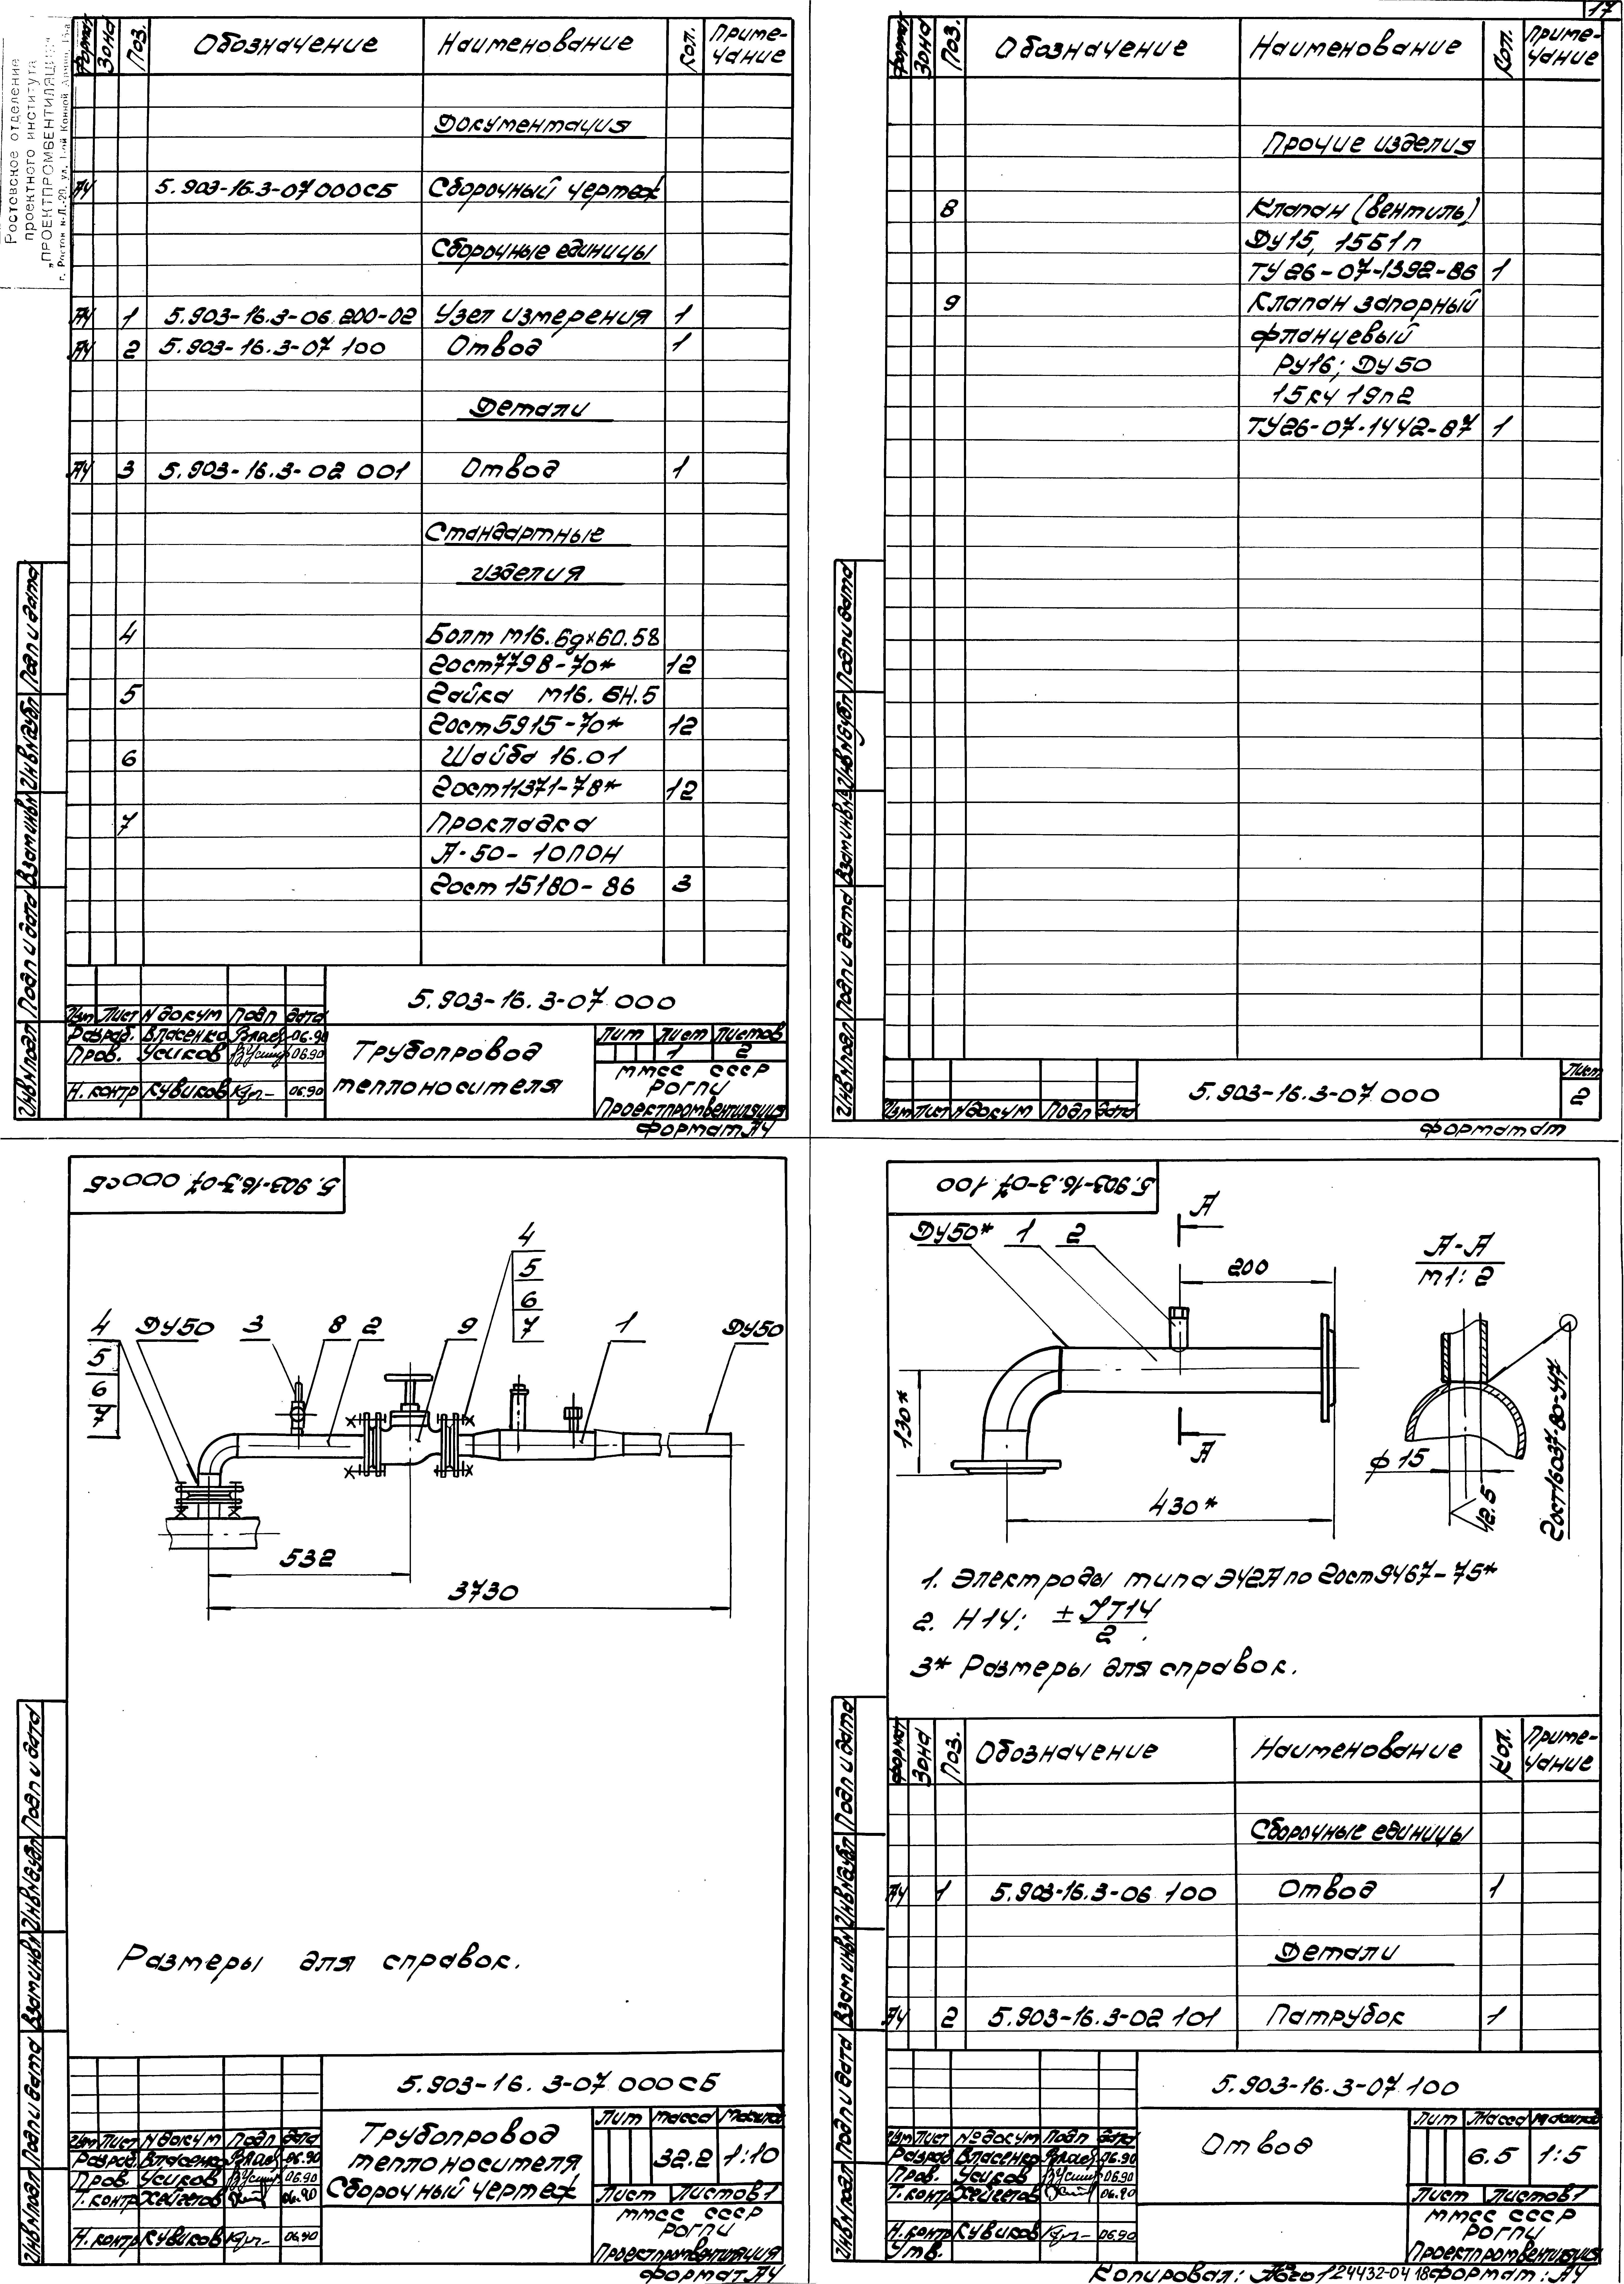 Ростовское отделение
проектного института
„ПРОЕКТПРОМВЕНТИЛЯЦИЯ"
Формат Зона Поз. Обозначение Наименование Кол. Приме-
чание
Документация
А4 5.903-16.3-07 000СБ Сборочный чертеж
Сборочные единицы
А4 1 5.903-16.3-06.200-02 Узел измерения 1
А4 2 5.903-16.3-07 100 Отвод 1
Детали
А4 3 5.903-16.3-02 001 Отвод 1
Стандартные
изделия
4 Болт М16.6g×60.58
Гост 7798-70* 12
5 Гайка М16.6Н.5
Гост 5915-70* 12
6 Шайба 16.01
Гост 11371-78* 12
7 Прокладка
А-50-10ПОН
Гост 15180-86 3
Инв№подл Подп и дата Взам инв№ Инв№дубл Подп и дата
5.903-16.3-07 000
Изм Лист №докум Подп Дата
Разраб. Власенко 06.90
Пров. Усиков 06.90
Н. контр Кувиков 06.90
Трубопровод
теплоносителя
Лит Лист Листов
1 2
ММСС СССР
РОГПИ
Проектпромвентиляция
Формат А4
17
Формат Зона Поз. Обозначение Наименование Кол. Приме-
чание
Прочие изделия
8 Клапан (вентиль)
Ду15, 15Б1п
ТУ26-07-1392-86 1
9 Клапан запорный
фланцевый
Ру16; Ду50
15кч 19п2
ТУ26-07-1442-87 1
Инв№подл Подп и дата Взам инв№ Инв№дубл Подп и дата
Изм Лист №докум Подп Дата
5.903-16.3-07 000
Лист
2
5.903-16.3-07 000СБ
4
5
6
7
4 Ду50 3 8 2 9 1 Ду50
5
6
7
532
3730
Размеры для справок.
Инв№подл Подп и дата Взам инв№ Инв№дубл Подп и дата
5.903-16.3-07 000СБ
Изм Лист №докум Подп Дата
Разраб Власенко 06.90
Пров. Усиков 06.90
Т. контр Хейгетов 06.90
Н. контр Кувиков 06.90
Трубопровод
теплоносителя
Сборочный чертеж
Лит Масса Масштаб
32.2 1:10
Лист Листов 1
ММСС СССР
РОГПИ
Проектпромвентиляция
Формат А4
5.903-16.3-07 100
Ду50* 1 2
А
200
А-А
М1:2
130*
А
430*
ϕ 15
12.5
Гост 16037-80-У17
1. Электроды типа Э42А по Гост 9467-75*
2. Н14; ± JT14
2
3* Размеры для справок.
Формат Зона Поз. Обозначение Наименование Кол. Приме-
чание
Сборочные единицы
А4 1 5.903-16.3-06 100 Отвод 1
Детали
А4 2 5.903-16.3-02 101 Патрубок 1
Инв№подл Подп и дата Взам инв№ Инв№дубл Подп и дата
5.903-16.3-07 100
Изм Лист №докум Подп Дата
Разраб Власенко 06.90
Пров. Усиков 06.90
Т. контр Хейгетов 06.90
Н. контр Кувиков 06.90
Утв.
Отвод
Лит Масса Масштаб
6.5 1:5
Лист Листов 1
ММСС СССР
РОГПИ
Проектпромвентиляция
Копировал: 24432-04 18 Формат: А4